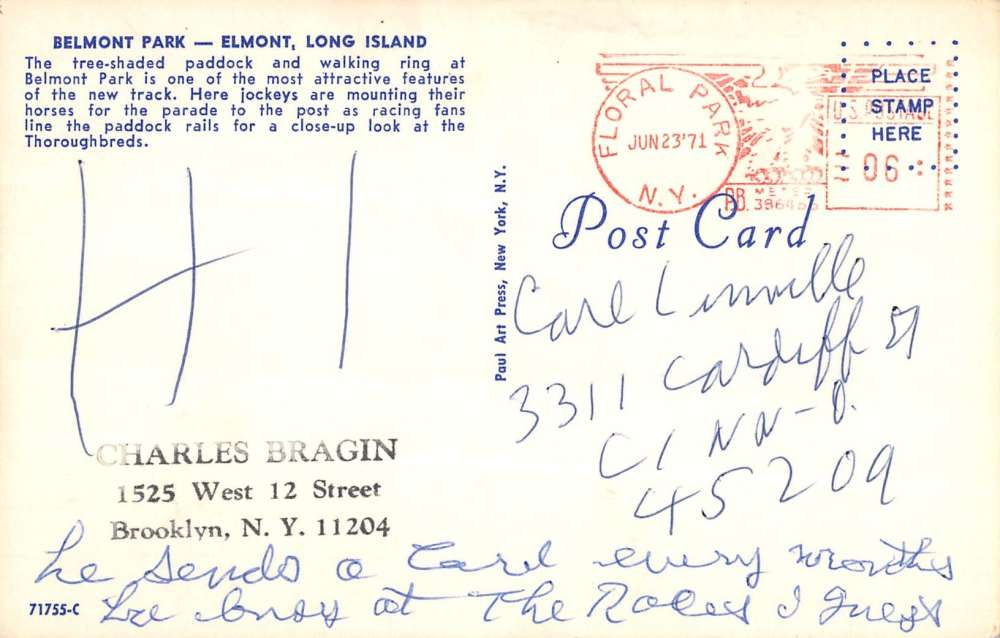 BELMONT PARK — ELMONT, LONG ISLAND
The tree-shaded paddock and walking ring at
Belmont Park is one of the most attractive features
of the new track. Here jockeys are mounting their
horses for the parade to the post as racing fans
line the paddock rails for a close-up look at the
Thoroughbreds.
HI
CHARLES BRAGIN
1525 West 12 Street
Brooklyn, N. Y. 11204
he sends a Card every months
he busy at The Races I guess
71755-C
Paul Art Press, New York, N.Y.
FLORAL PARK
JUN 23 '71
N.Y.
P.B. METER
U.S. POSTAGE
06
PLACE
STAMP
HERE
Post Card
Carl Linville
3311 Cardiff
CINN-O.
45209